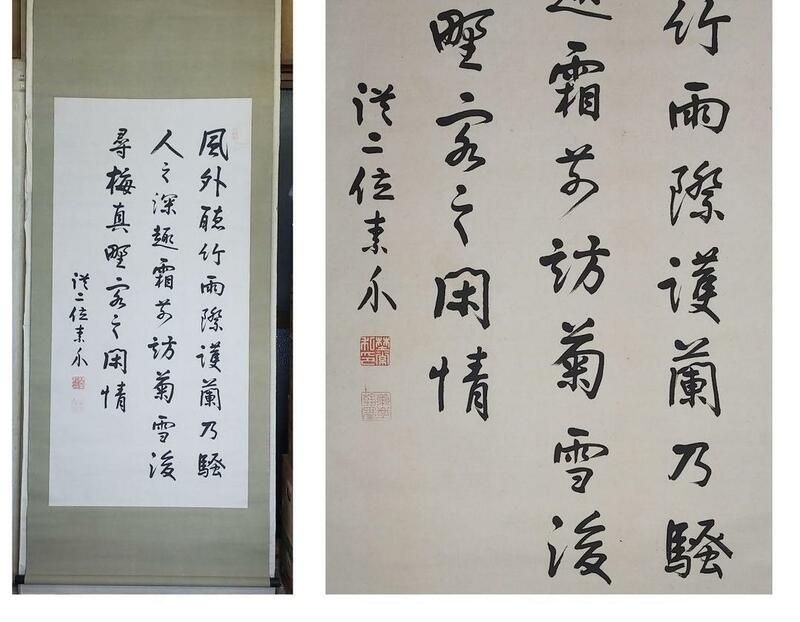 風外聴竹雨際護蘭乃騒
人之深趣霜前訪菊雪後
尋梅真野客之閑情
従二位素介
竹雨際護蘭乃騒
趣霜前訪菊雪後
野客之閑情
従二位素介